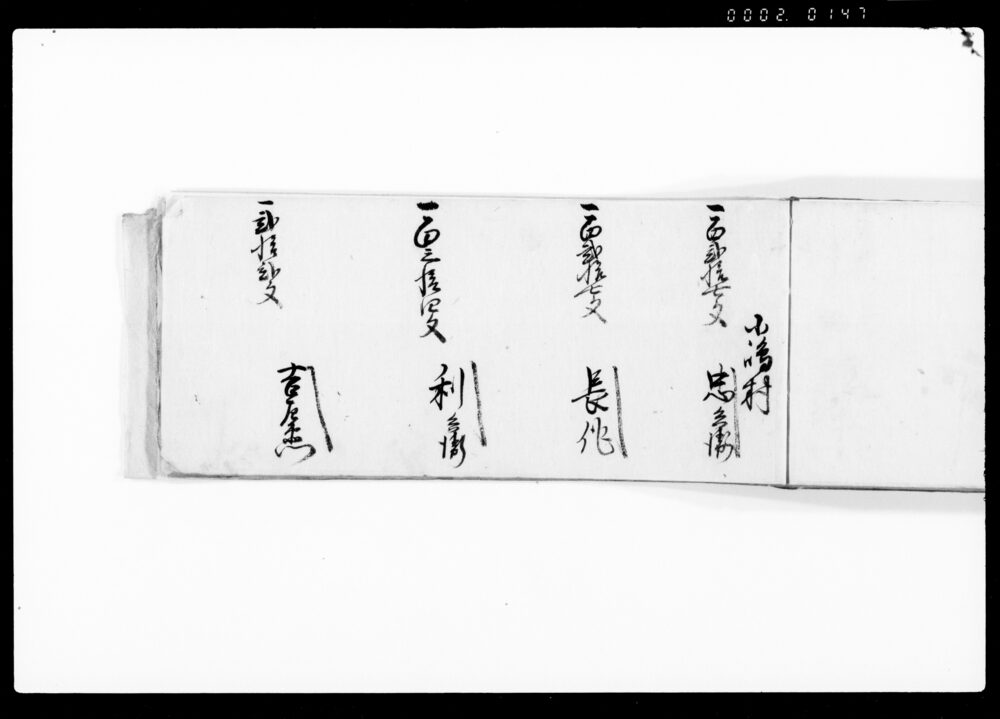 0002. 0147
一百弐拾七文
小嶋村
忠兵衛
一百弐拾七文
長作
一百三拾四文
利兵衛
一弐拾弐文